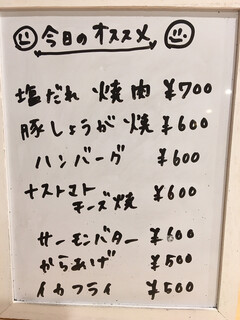 今日のオススメ
塩だれ 焼肉 ¥700
豚しょうが焼 ¥600
ハンバーグ ¥600
ナストマト
チーズ焼 ¥600
サーモンバター ¥600
からあげ ¥500
イカフライ ¥500